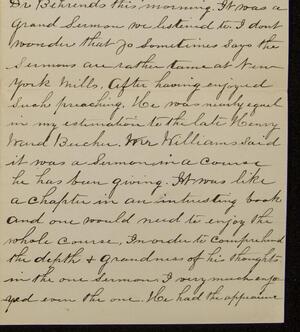 Dr Behrends this morning. It was a
Grand Sermon we listened to. I dont
wonder that Jo Sometimes says the
Sermons are rather tame at New
York Mills. After having enjoyed
Such preaching. He was nearly equal
in my estimation to the late Henry
Ward Beecher. Mr Williams said
it was a Sermon in a course
he has been giving. It was like
a chapter in an intresting book
and one would need to enjoy the
whole course, In order to comprehend
the depth & grandness of his thoughts
in the one Sermon. I very much enjo
yed even the one. He had the appearance